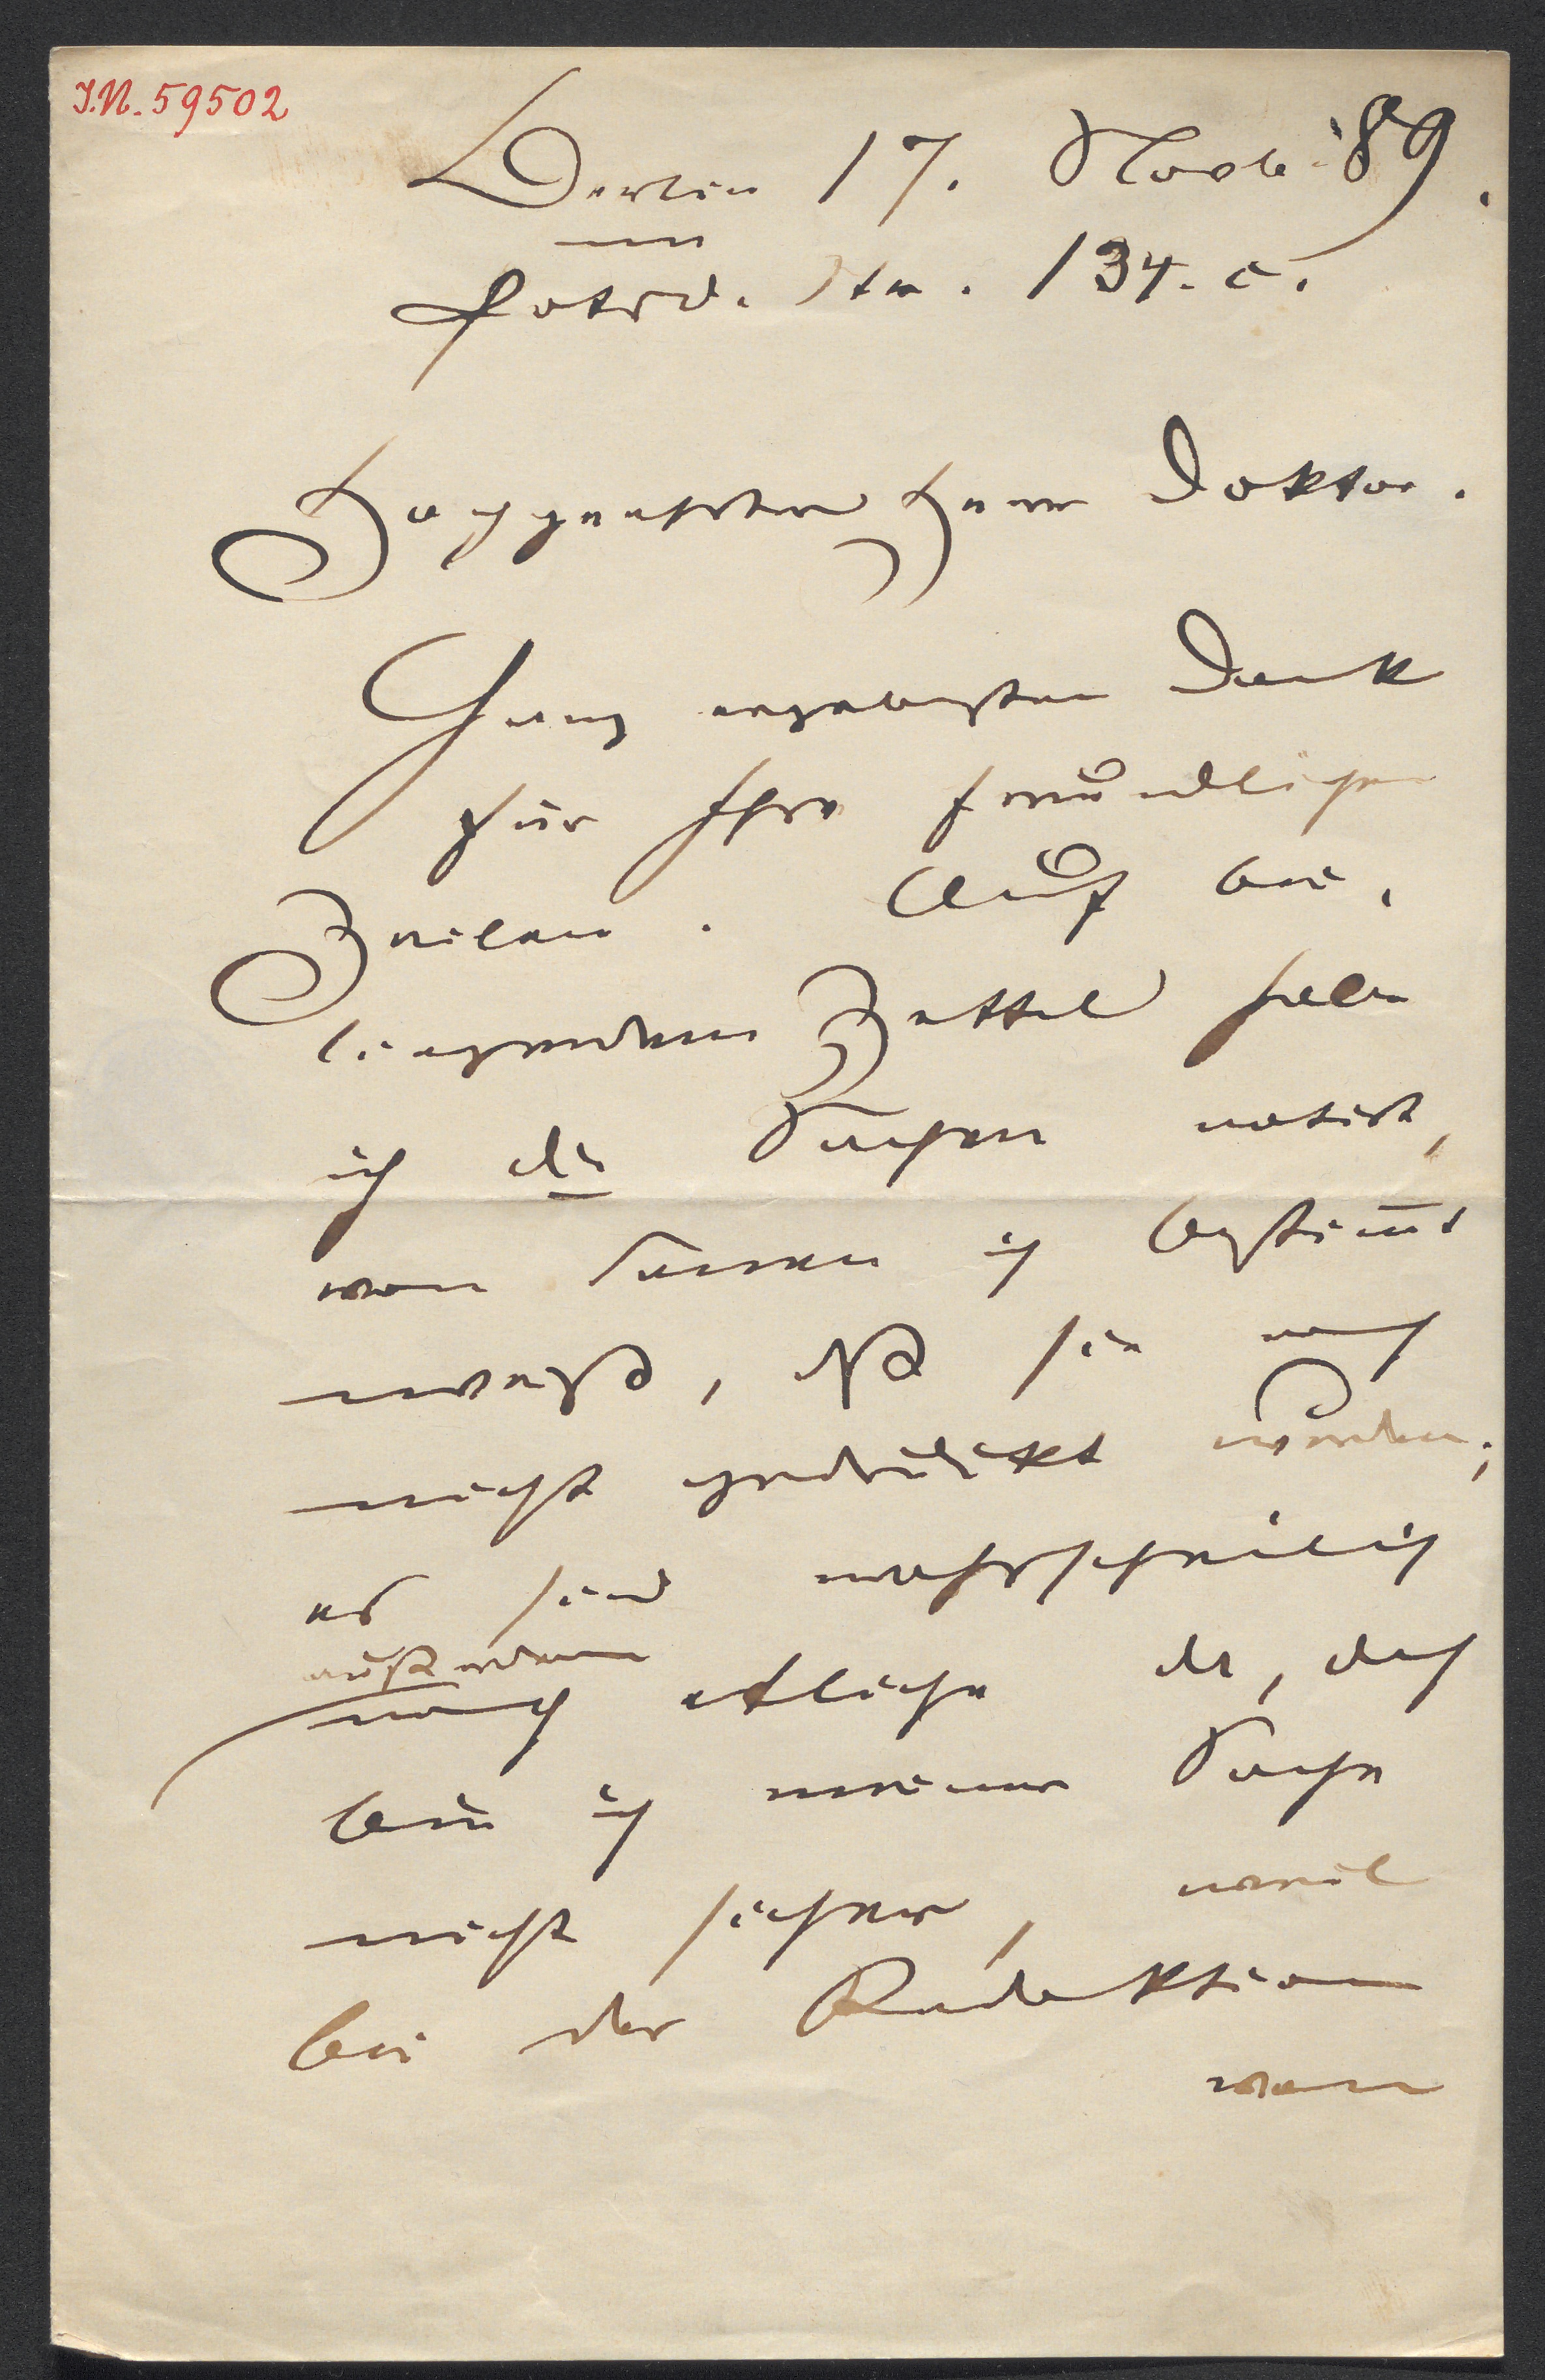 J.N. 59502
Berlin 17. Novb. 89.
Potsd. Str. 134. c.
Hochgeehrter Herr Doktor.
Ganz ergebensten Dank
für Ihre freundlichen
Zeilen. Auf bei-
liegendem Zettel habe
ich die Sachen notirt,
von denen ich bestimt
weiß, daß sie noch
nicht gedruckt wurden;
es sind wahrscheinlich
außerdem
noch etliche da, doch
bin ich meiner Sache
nicht sicher, weil
bei der Redaktion
von